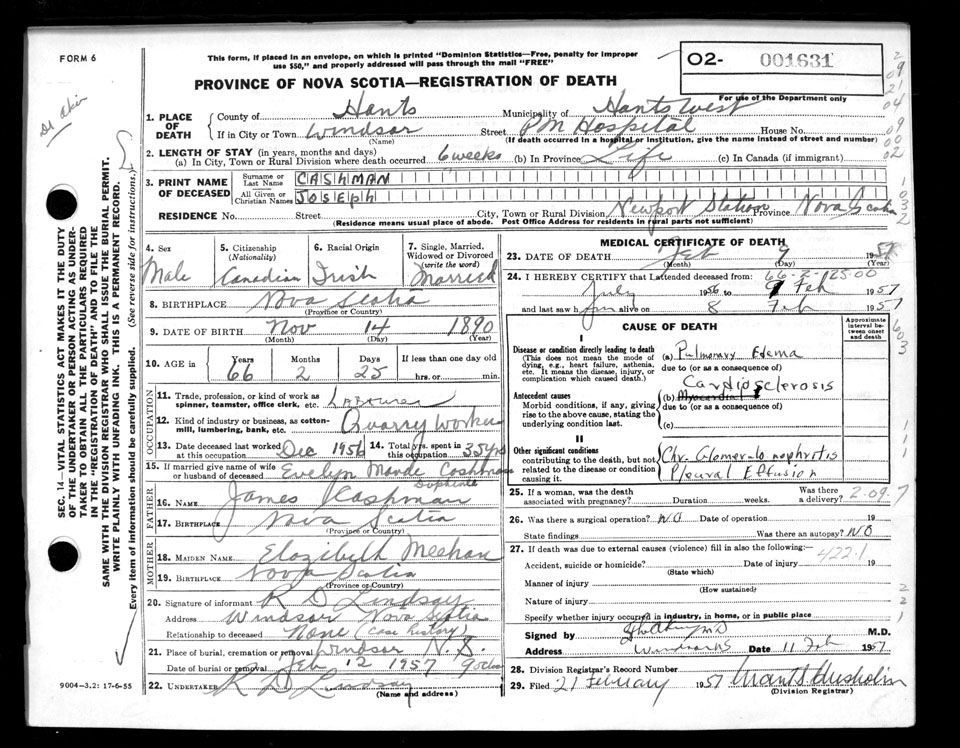 FORM 6
This form, if placed in an envelope, on which is printed "Dominion Statistics—Free, penalty for improper
use $50," and properly addressed will pass through the mail "FREE"
O2- 001631
PROVINCE OF NOVA SCOTIA—REGISTRATION OF DEATH
For use of the Department only
SEC. 14—VITAL STATISTICS ACT MAKES IT THE DUTY
OF THE UNDERTAKER OR PERSON ACTING AS UNDER-
TAKER TO OBTAIN ALL THE PARTICULARS REQUIRED
IN THE "REGISTRATION OF DEATH" AND TO FILE THE
SAME WITH THE DIVISION REGISTRAR WHO SHALL ISSUE THE BURIAL PERMIT.
WRITE PLAINLY WITH UNFADING INK. THIS IS A PERMANENT RECORD.
Every item of information should be carefully supplied. (See reverse side for instructions.)
1. PLACE OF DEATH County of Hants Municipality of Hants West
If in City or Town Windsor Street P M Hospital House No.
(Name) (If death occurred in a hospital or institution, give the name instead of street and number)
2. LENGTH OF STAY (in years, months and days)
(a) In City, Town or Rural Division where death occurred 6 weeks (b) In Province Life (c) In Canada (if immigrant)
3. PRINT NAME OF DECEASED Surname or Last Name CASHMAN
All Given or Christian Names JOSEPH
RESIDENCE No. Street City, Town or Rural Division Newport Station Province Nova Scotia
(Residence means usual place of abode. Post Office Address for residents in rural parts not sufficient)
4. Sex 5. Citizenship (Nationality) 6. Racial Origin 7. Single, Married, Widowed or Divorced (write the word)
Male Canadian Irish Married
8. BIRTHPLACE Nova Scotia
(Province or Country)
9. DATE OF BIRTH Nov 14 1890
(Month) (Day) (Year)
10. AGE in Years Months Days If less than one day old
66 2 25 hrs. or min.
OCCUPATION
11. Trade, profession, or kind of work as
spinner, teamster, office clerk, etc. Labourer
12. Kind of industry or business, as cotton-
mill, lumbering, bank, etc. Quarry Worker
13. Date deceased last worked at this occupation Dec 1956 14. Total yrs. spent in this occupation 35 yrs
15. If married give name of wife
or husband of deceased Evelyn Maude Cashman
FATHER
16. NAME James Cashman
17. BIRTHPLACE Nova Scotia
(Province or Country)
MOTHER
18. MAIDEN NAME Elozibeth Meehan
19. BIRTHPLACE Nova Scotia
(Province or Country)
20. Signature of informant R D Lindsay
Address Windsor Nova Scotia
Relationship to deceased None (case history)
21. Place of burial, cremation or removal Windsor N.S.
Date of burial or removal Feb 12 1957
22. UNDERTAKER R D Lindsay
(Name and address)
9004-3.2: 17-6-55
MEDICAL CERTIFICATE OF DEATH
23. DATE OF DEATH Feb 9 1957
(Month) (Day) (Year)
24. I HEREBY CERTIFY that I attended deceased from: 66-2-25 00
July 1956 to 9 Feb 1957
and last saw him alive on 8 Feb 1957
CAUSE OF DEATH
Approximate interval between onset and death
I
Disease or condition directly leading to death (a) Pulmonary Edema
(This does not mean the mode of
dying, e.g., heart failure, asthenia,
etc. It means the disease, injury, or
complication which caused death.)
due to (or as a consequence of)
Cardiosclerosis
Antecedent causes (b) Myocardial
Morbid conditions, if any, giving
rise to the above cause, stating the
underlying condition last.
due to (or as a consequence of)
(c)
II
Other significant conditions
contributing to the death, but not
related to the disease or condition
causing it.
Chr. Glomerulo nephritis
Pleural Effusion
25. If a woman, was the death
associated with pregnancy? Duration weeks. Was there a delivery? 2.09.7
26. Was there a surgical operation? NO Date of operation 19
State findings Was there an autopsy? NO
27. If death was due to external causes (violence) fill in also the following:—
422.1
Accident, suicide or homicide? Date of injury 19
(State which)
Manner of injury
(How sustained)
Nature of injury
Specify whether injury occurred in industry, in home, or in public place
Signed by M.D.
Address Windsor NS Date 11 Feb 1957
28. Division Registrar's Record Number
29. Filed 21 February 1957 Chisholm
(Division Registrar)